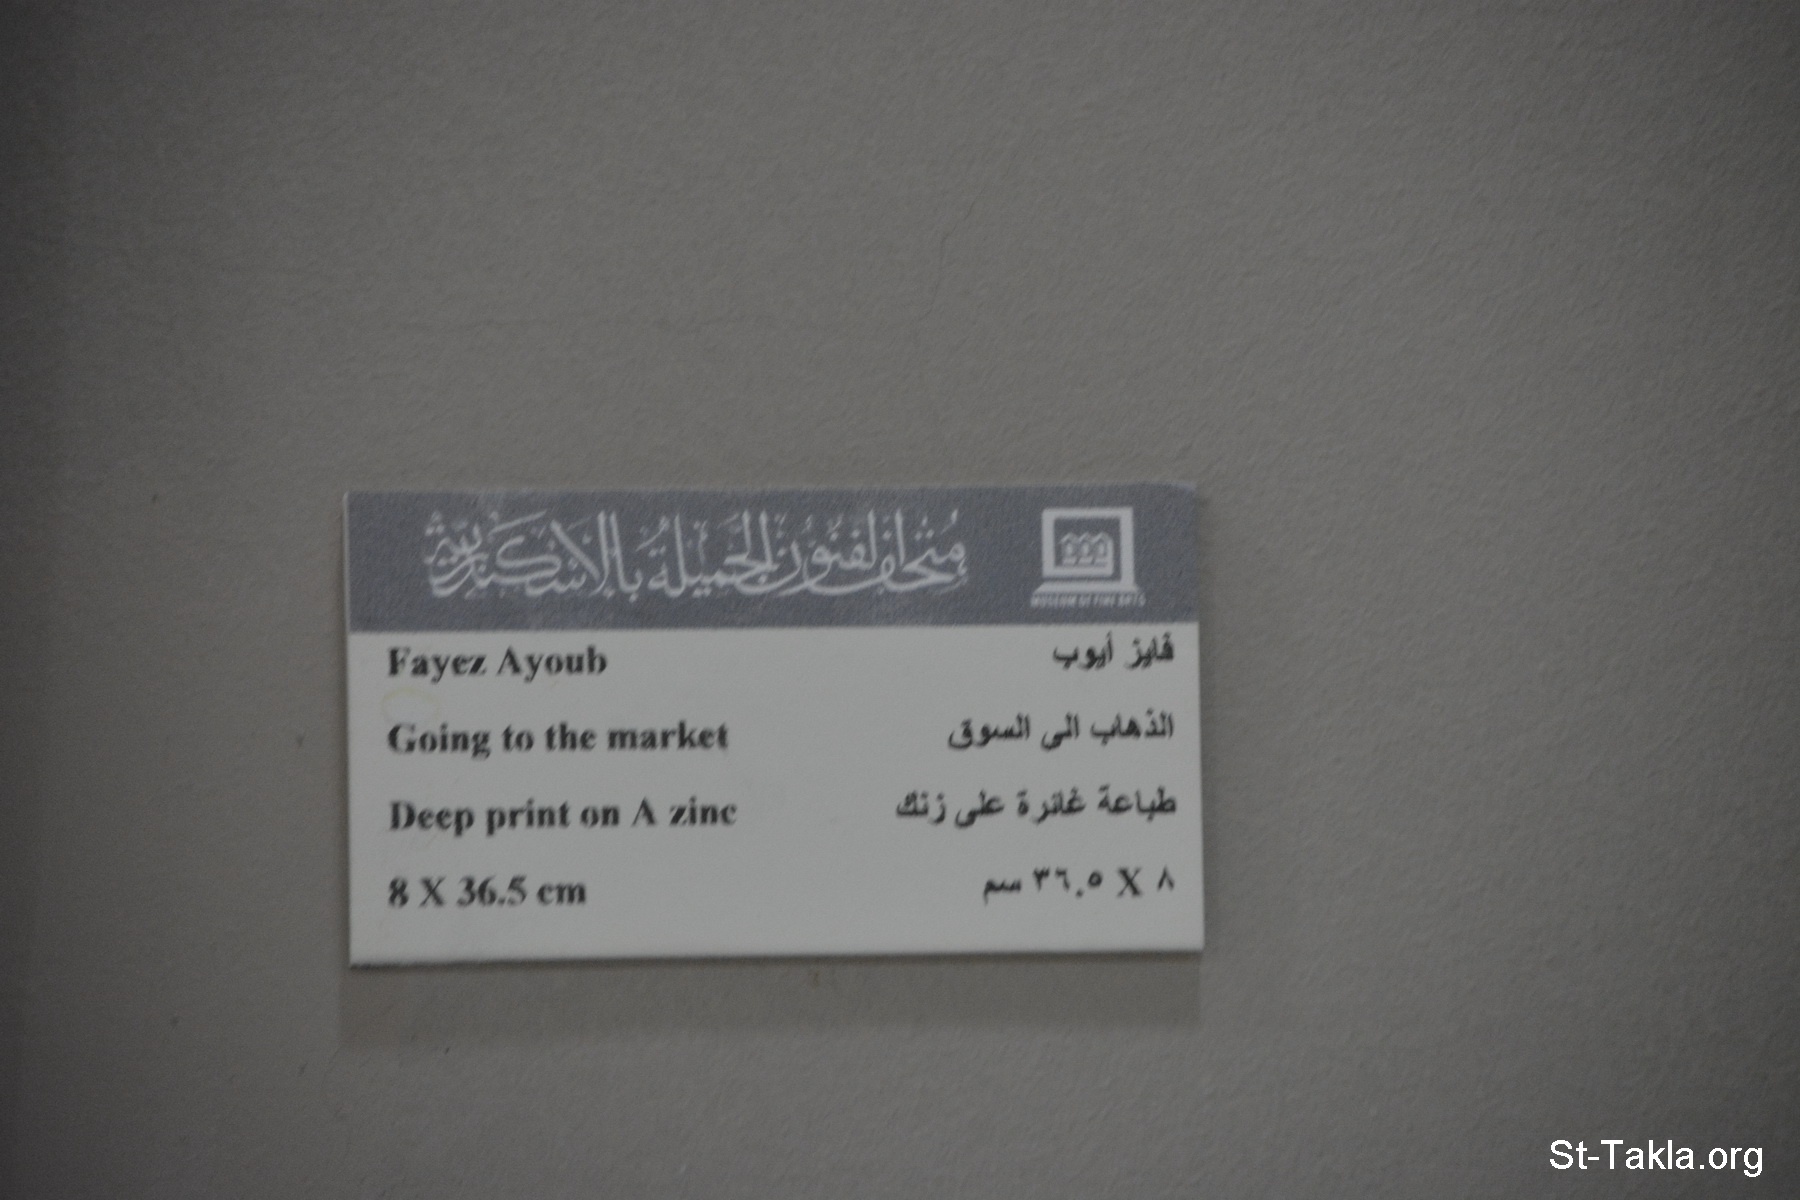 متحف الفنون الجميلة بالاسكندرية
MUSEUM OF FINE ARTS
Fayez Ayoub
فايز أيوب
Going to the market
الذهاب الى السوق
Deep print on A zinc
طباعة غائرة على زنك
8 X 36.5 cm
٨ X ٣٦.٥ سم
St-Takla.org